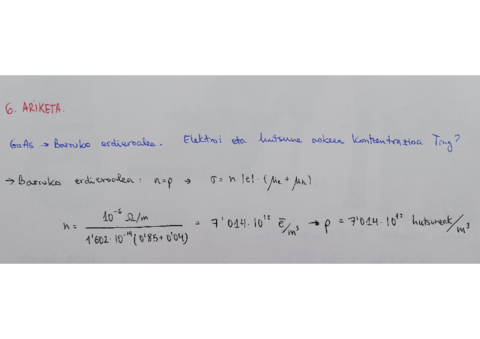 6. ARIKETA.
GaAs → Barruko erdieroalea. Elektroi eta hutsune askeen kontzentrazioa Ting?
→ Barruko erdieroalea: n=p → σ = n |e| · (μe + μh)
n = 10⁻⁶ Ω/m / 1'602·10⁻¹⁹(0'85+0'04) = 7'014·10¹² ē/m³ → p = 7'014·10¹² hutsunek/m³